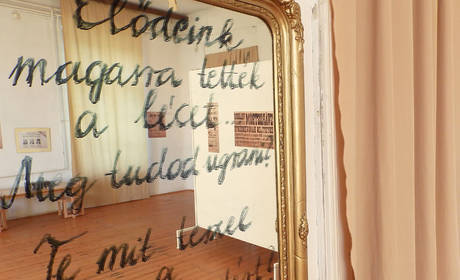 Elődeink
magasra tették
a lécet...
Meg tudod ugrani?
Te mit teszel
a